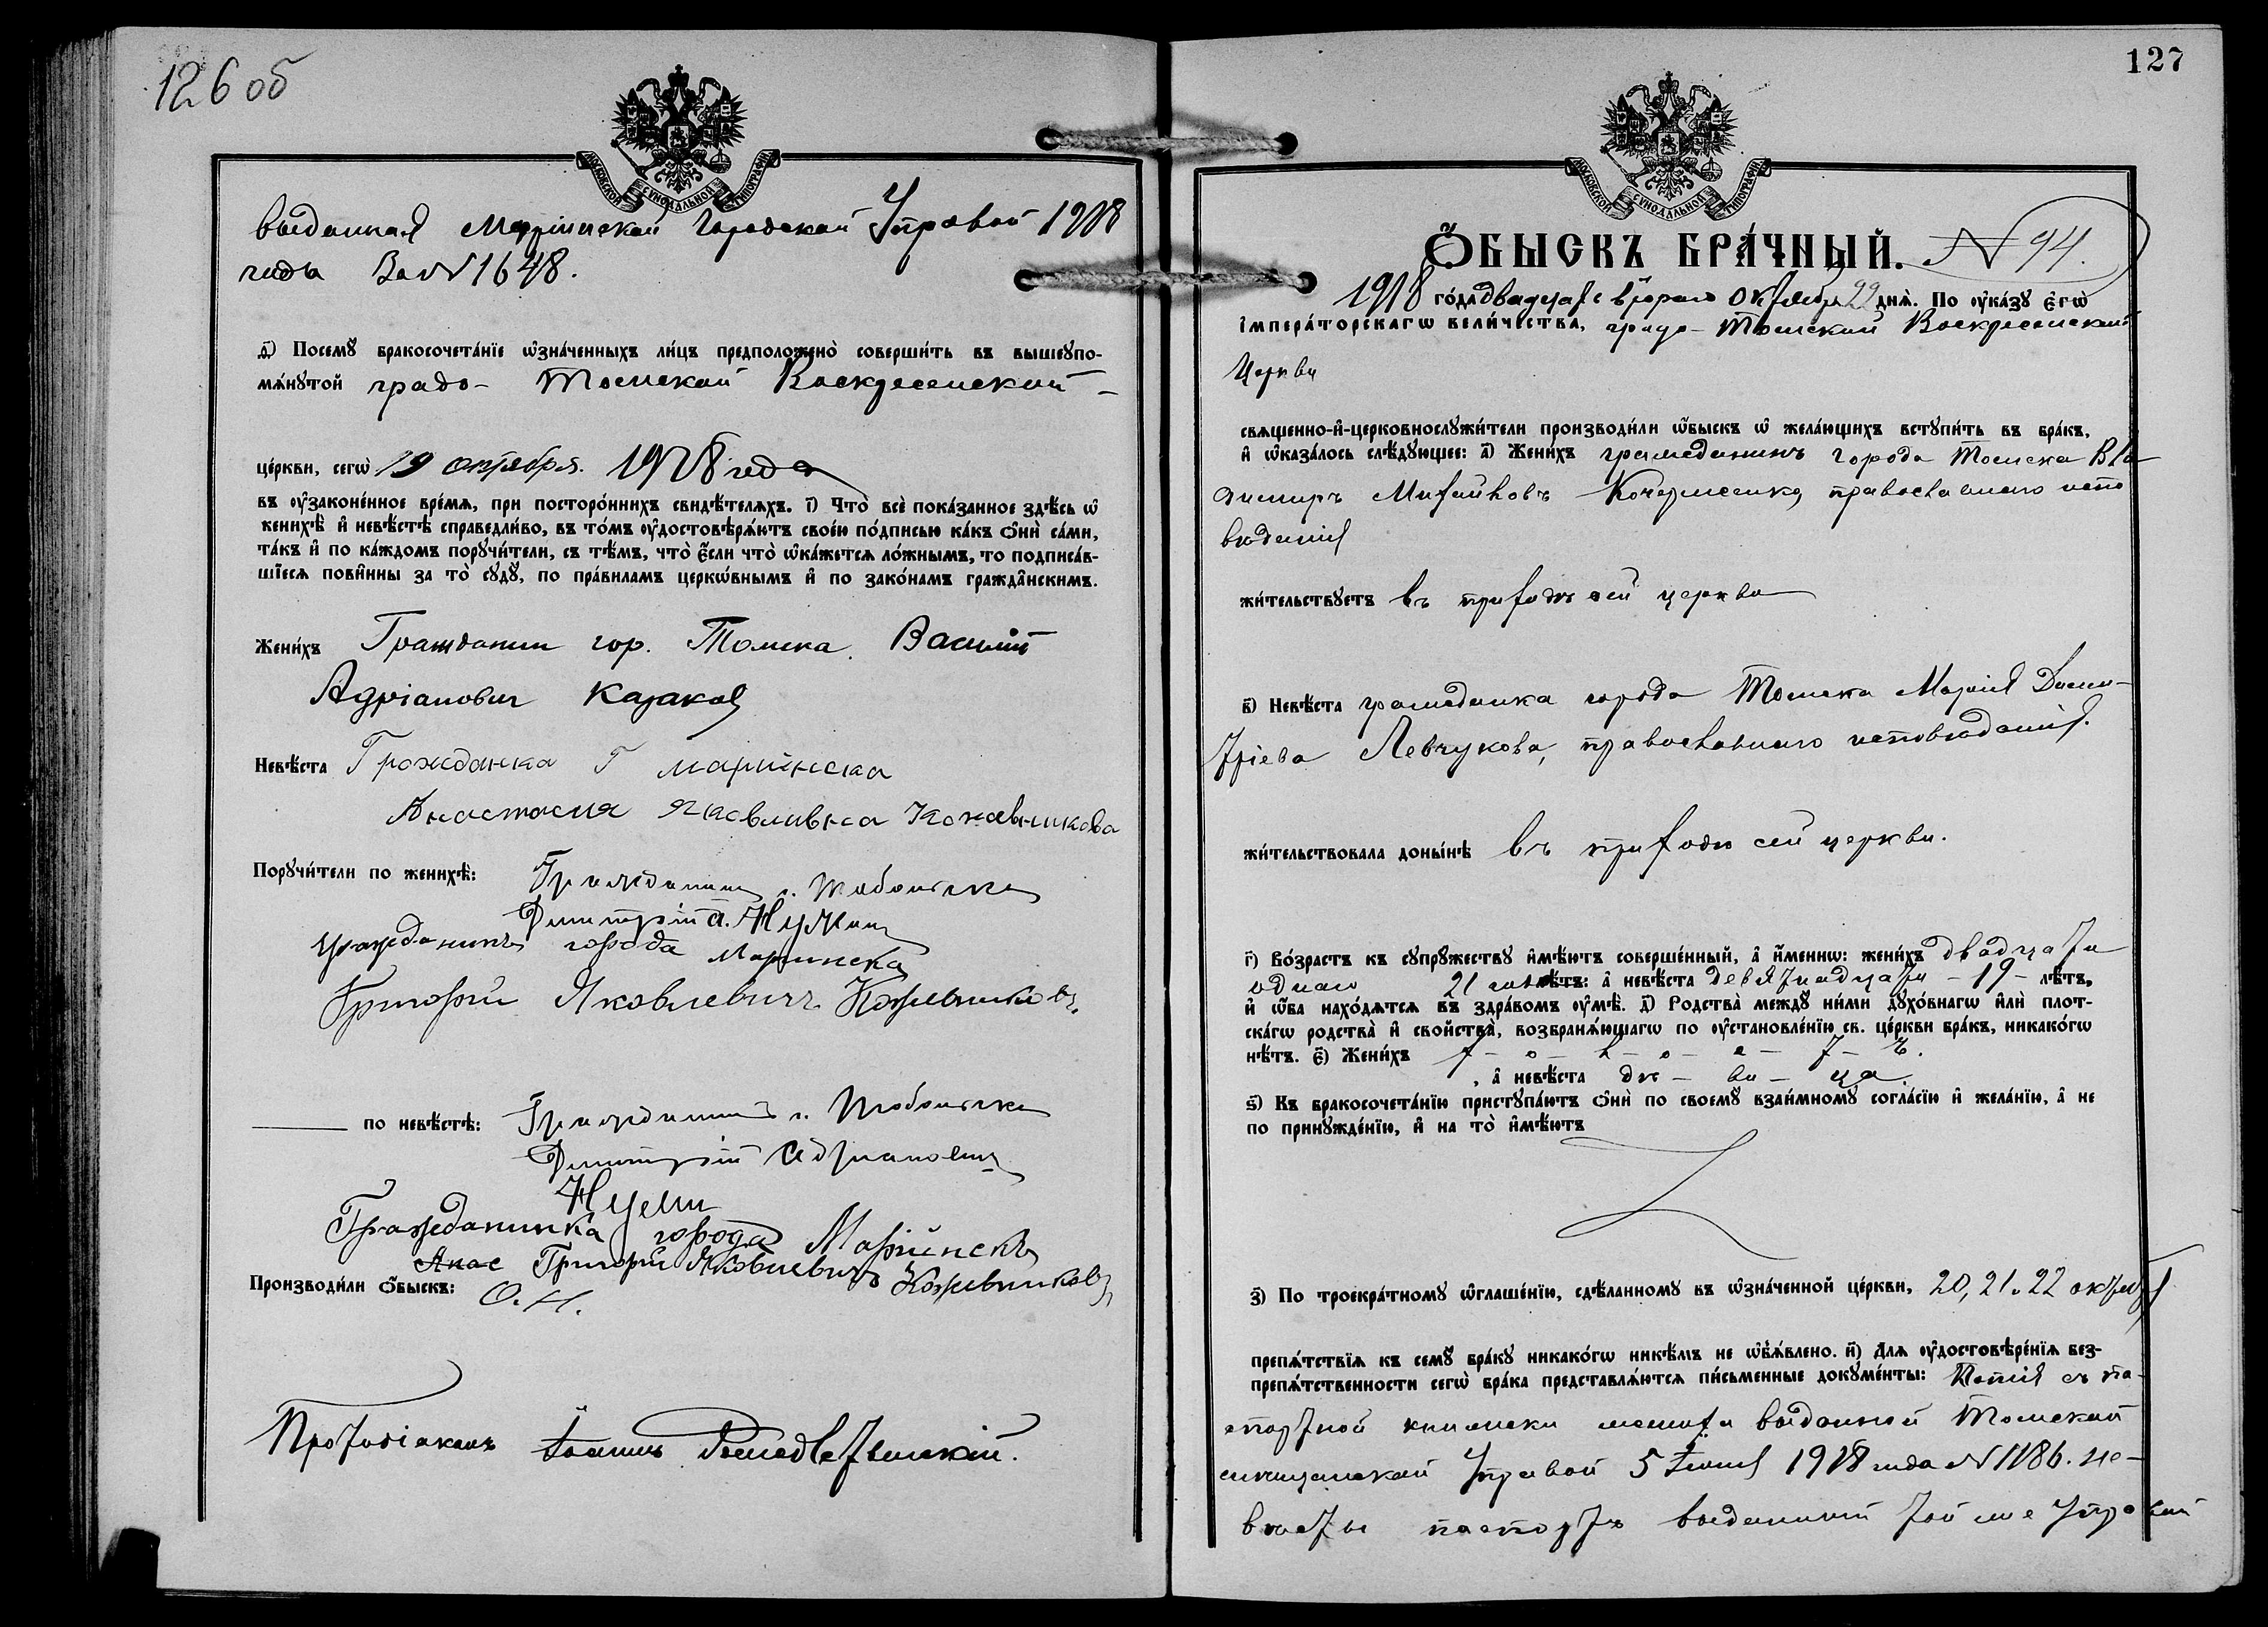 126 об
МОСКОВСКОЙ СѴНОДАЛЬНОЙ ТИПОГРАФІИ
выданная Маріинской Городской Управой 1918
года За N 1648.
Посемꙋ бракосочета́нїе ѡ҆зна́ченныхъ ли́цъ предположено̀ соверши́ть въ вышеꙋпо-
мѧ́нꙋтой градо- Томской Воскресенской -
це́ркви, сегѡ̀ 19 октября. 1918 года
въ ᲂу҆законе́нное вре́мѧ, при посторо́ннихъ свидѣ́телѧхъ. і҃) Что̀ всѐ пока́занное здѣ́сь ѡ҆
женихѣ̀ и҆ невѣ́стѣ справедли́во, въ то́мъ ᲂу҆достовѣрѧ́ютъ свое́ю по́дписью ка́къ ѻ҆нѝ са́ми,
та́къ и҆ по ка́ждомъ порꙋчи́тели, съ тѣ́мъ, что̀ є҆́сли что̀ ѡ҆ка́жетсѧ ло́жнымъ, то подписа́в-
шїесѧ пови́нны за то̀ сꙋдꙋ̀, по пра́виламъ церкѡ́внымъ и҆ по зако́намъ гражда́нскимъ.
Жени́хъ Гражданин гор. Томска. Василий
Адріанович Казаков
Невѣ́ста Грожданка Г маріинска
Анастасия Яковливна Кожевникова
Порꙋчи́тели по женихѣ̀: Гражданин г. Тобольска
Димитрій А.
Гражданинъ города Мариинска
Григорий Яковлевичъ Кожевниковъ.
по невѣ́стѣ: Гражданинъ г. Тобольска
Димитрій Адрианович
Гражданинка города Маріинскъ
Анас Григорий Яковлевичъ Кожевниковъ
Производи́ли ѻ҆́быскъ: О. Н.
Протодіаконъ Іоаннъ
127
МОСКОВСКОЙ СѴНОДАЛЬНОЙ ТИПОГРАФІИ
Ѻ҆́БЫСКЪ БРА́ЧНЫЙ. N 94.
1918 го́да двадцать второго октября 22 днѧ̀. По ᲂу҆ка́зꙋ є҆гѡ̀
і҆мпера́торскагѡ вели́чества, градо-Томской Воскресенской
Церкви
свѧще́нно-и҆-церковнослꙋжи́тели производи́ли ѻ҆́быскъ ѡ҆ жела́ющихъ встꙋпи́ть въ бра́къ,
и҆ ѡ҆каза́лось слѣ́дꙋющее: а҃) Жени́хъ гражданинъ города Томска Вла
димиръ Михайловъ православнаго испо
вѣданія
жи́тельствꙋетъ въ приходѣ сей церкви
в҃) Невѣ́ста гражданка города Томска Марія Дими-
тріева Левчукова, православнаго исповѣданія.
жи́тельствовала доны́нѣ въ приходѣ сей церкви.
г҃) Во́зрастъ къ сꙋпрꙋ́жествꙋ и҆мѣ́ютъ соверше́нный, а҆ и҆́меннѡ: жени́хъ двадцати
одного 21 лѣ́тъ: а҆ невѣ́ста девятнадцати - 19 - лѣ́тъ,
и҆ ѻ҆́ба нахо́дѧтсѧ въ здра́вомъ ᲂу҆мѣ̀. д҃) Родства̀ междꙋ̀ ни́ми дꙋхо́внагѡ и҆лѝ плот-
ска́гѡ родства̀ и҆ сво́йства̀, возбранѧ́ющагѡ по ᲂу҆становле́нїю св. це́ркви бра́къ, никако́гѡ
нѣ́тъ. є҃) Жени́хъ х - о - л - о - с - т - ъ.
, а҆ невѣ́ста дѣ - ви - ца.
ѕ҃) Къ бракосочета́нїю пристꙋпа́ютъ ѻ҆нѝ по своемꙋ̀ взаи́мномꙋ согла́сїю и҆ жела́нїю, а҆ не
по принꙋжде́нїю, и҆ на то̀ и҆мѣ́ютъ
з҃) По троекра́тномꙋ ѡ҆глаше́нїю, сдѣ́ланномꙋ въ ѡ҆зна́ченной це́ркви, 20, 21 и 22 октября
препѧ́тствїѧ къ семꙋ̀ бра́кꙋ никако́гѡ никѣ́мъ не ѡ҆б̾ѧ́влено. и҃) Длѧ ᲂу҆достовѣре́нїѧ без-
препѧ́тственности сегѡ̀ бра́ка представлѧ́ютсѧ пи́сьменные докꙋме́нты: Копія съ па-
спортной книжки жениха выданной Томской
мѣщанской Управой 5 Іюня 1918 года N 1186. не-
вѣсты паспортъ выданный той же Управой